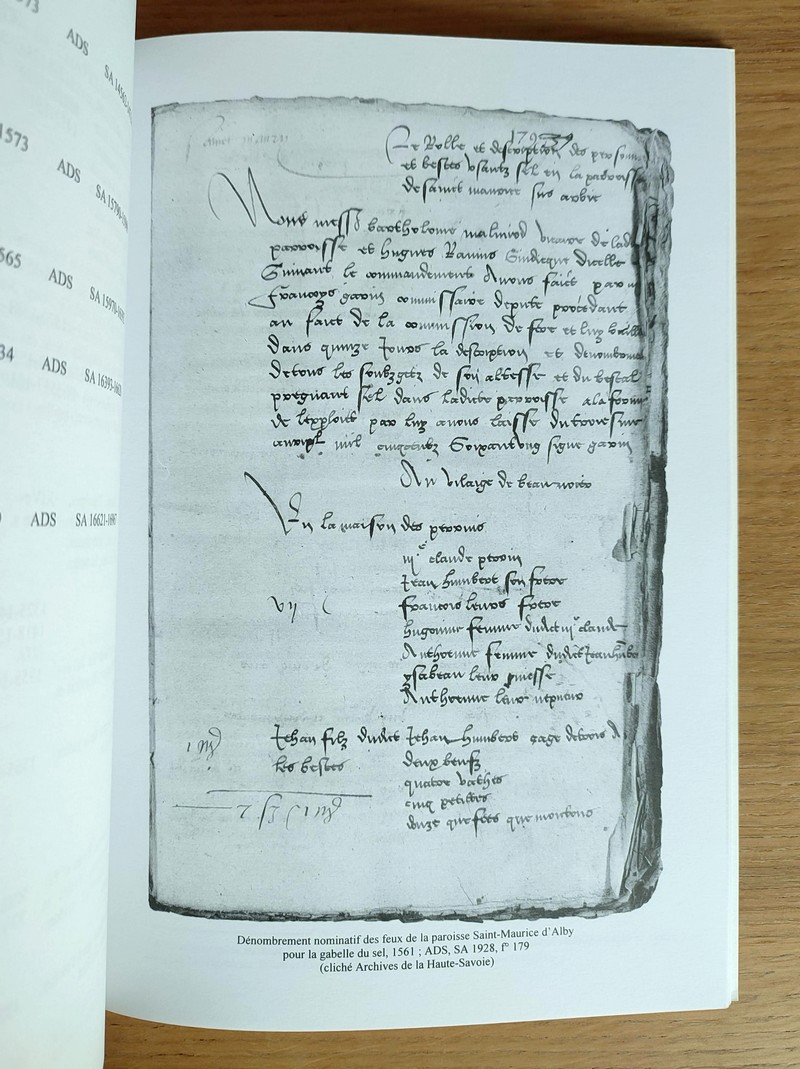 573
ADS SA 14563-
1573 ADS SA 15790-
565 ADS SA 15970-
34 ADS SA 16393-
ADS SA 16621-
Le Rolle et description des personnes
et bestes usantz sel en la parroisse
de sainct maurice sus arbie
Nous mess bartholome maliniod vicaire de lad
parroisse et hugues Ravins Sindicque dicelle
Suivant le commandement A nous faict par m
francoys gavin commissaire depute procedant
au faict de la commission de
dans quinze Jours la description et denombrem
de tous les soubzgetz de son altesse et du bestal
pregnant sel dans ladicte parroisse a la forme
de lexploict par luy a nous laisse du troysine
apvril mil cinqcentz Soixantung signe gavin
Au vilaige de beaumoire
En la maison des perrins
claude perrin
Jean humbert son frere
francois leurs frere
hugonine femme dudict claude
Anthoenne femme dudict Jean humbe
ysabeau leur niesse
Anthoenne leur nepveur
vij
Jehan filz dudict Jehan humbert eage de trois A
les bestes deux beufz
quatre vaches
cinq petittes
douze que fees que moutons
Dénombrement nominatif des feux de la paroisse Saint-Maurice d'Alby
pour la gabelle du sel, 1561 ; ADS, SA 1928, f° 179
(cliché Archives de la Haute-Savoie)